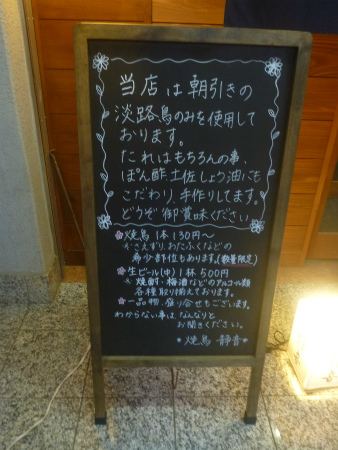 当店は朝引きの
淡路鳥のみを使用して
おります。
たれはもちろんの事、
ぽん酢土佐しょう油にも
こだわり、手作りしてます。
どうぞ御賞味ください
焼鳥 1本130円〜
かさえずり、おたふくなどの
希少部位もあります。(数量限定)
生ビール(中)1杯500円
※焼酎・梅酒などのアルコール類
各種取り揃えております。
一品物、盛り合せもございます。
わからない事は、なんなりと
お聞きください。
*焼鳥 静香*